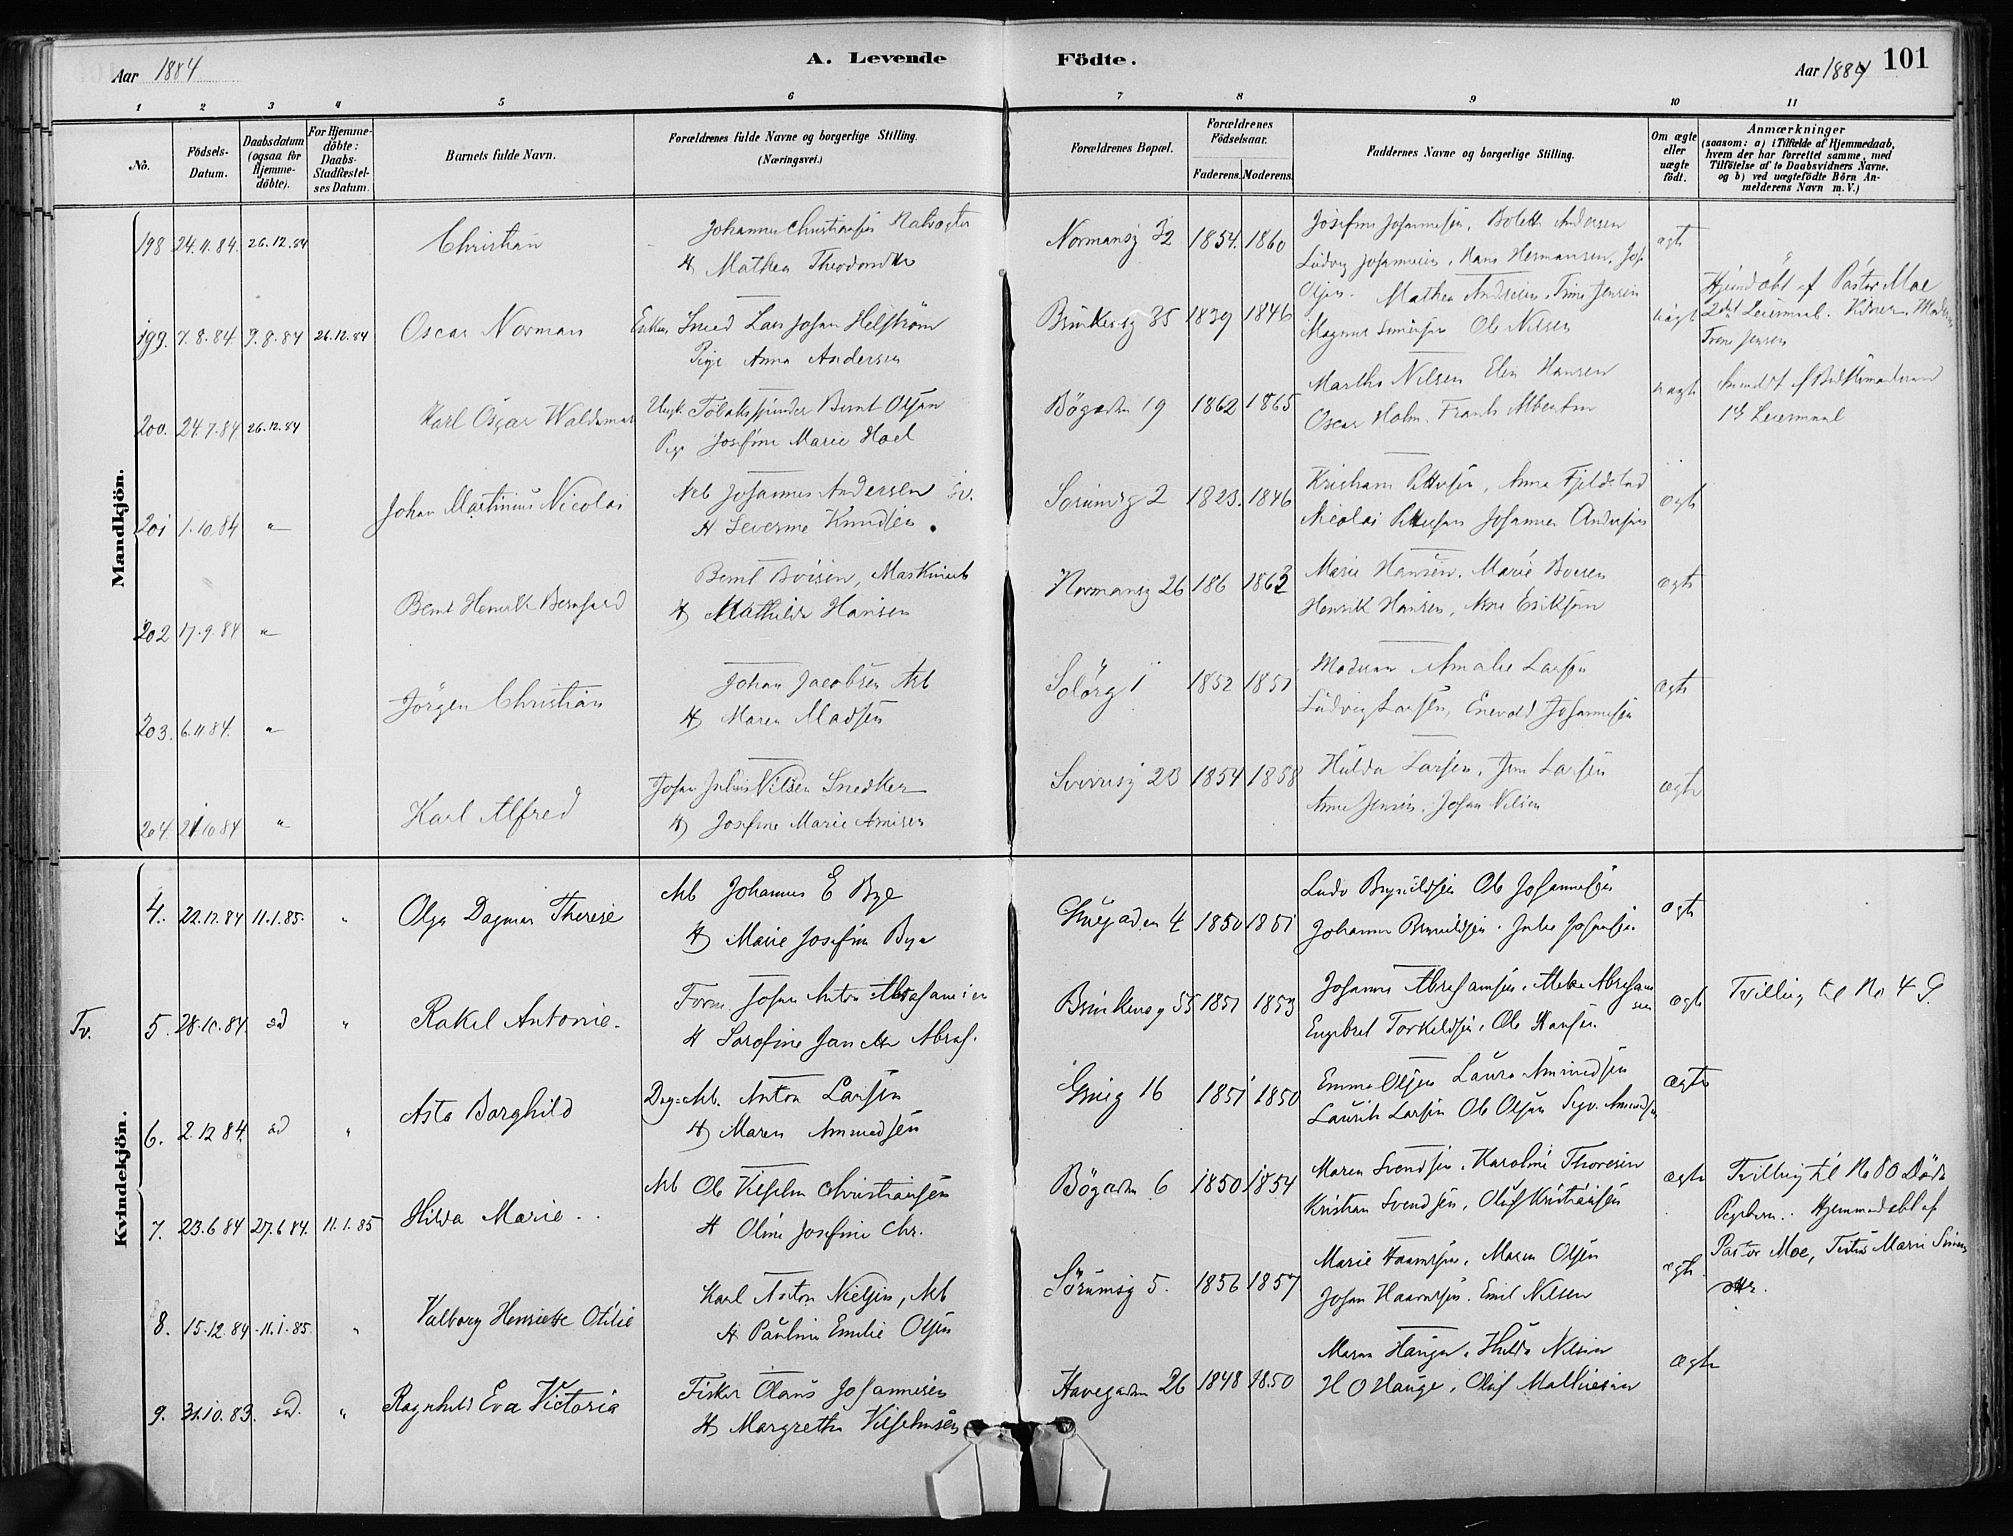 Aar 1884
A. Levende
Födte.
Aar 1884 101
1 2 3 4 5 6 7 8 9 10 11
No.
Födsels-
Datum.
Daabsdatum
(ogsaa for
Hjemme-
döbte).
For Hjemme-
döbte:
Daabs-
Stadfæstel-
ses Datum.
Barnets fulde Navn.
Forældrenes fulde Navne og borgerlige Stilling.
(Næringsvei.)
Forældrenes Bopæl.
Forældrenes
Födselsaar.
Faderens. Moderens.
Faddernes Navne og borgerlige Stilling.
Om ægte
eller
uægte
födt.
Anmærkninger
(saasom: a) i Tilfælde af Hjemmedaab,
hvem der har forrettet samme, med
Tilföielse af to Daabsvidners Navne,
og b) ved uægtefödte Börn An-
melderens Navn m. V.)
Mandkjön.
198 24.11.84. 26.12.84 Christian
Johannes Christiansen
H Mathea
Normansg 32 1854. 1860
Josefine Johannesen, Bolette Andersen
Ludvig Johannesen, Hans Hermansen, Joh.
Olsen.
ægte
199. 7.8.84 9.8.84 26.12.84 Oscar Norman
Enkem. Smed Lars Johan Helström
Pige Anna Andersen
Brinkensg 35 1839 1846
Mathea Andersen, Trine Jensen
Magnus Ole Nilsen
uægte
Hjemdöbt af Pastor Moe
2det Leiermaal. Vidner,
Trine Jensen
200. 24.7.84 26.12.84 Karl Oscar Waldemar
Ungk. Tobaksspinder Bernt Olsen
Pige Josefine Marie Hoel
Bögaden 19 1862 1865
Martha Nilsen Elen Hansen
Oscar Holm. Frants Albertsen
uægte
Anmeldt af
1ste Leiermaal
201 1.10.84 " Johan Martinius Nicolai
Arb Johannes Andersen Sv.
H Severine Knudsen.
Sorumsg 2 1823. 1846
Kristiane Pettersen, Anna Fjeldstad
Nicolai Pettersen Johannes Andersen
ægte
202 17.9.84 " Bernt Henrik Bernhard
Bernt Boisen, Maskinarb
H Mathilde Hansen
Normansg 26 186 1862
Marie Hansen. Marie Boesen
Henrik Hansen, Eriksen
ægte
203. 6.11.84. " Jörgen Christian
Johan Jacobsen Arb
H Maren Madsen
Solörg 1 1852 1851
Amalie Larsen
Ludvig Larsen, Enevold Johannesen
ægte
204. 21.10.84 " Karl Alfred
Johan Julius Nilsen Snedker
H Josefine Marie
Sverresg 23 1854 1858
Hulda Larsen, Larsen
Anne Jensen, Johan Nilsen
ægte
Kvindekjön.
4. 22.12.84 11.1.85. " Olga Dagmar Therese
Arb Johannes E Bye
H Marie Josefine Bye
4 1850 1851
Ludv Brynildsen Ole Johannesen
Johannes Brynildsen. Johansen
ægte
Tv. 5. 28.10.84. sd " Rakel Antonie.
Form Johan Anton Abrahamsen
H Abrah.
Brinkensg 55 1851 1853
Johannes Abrahamsen, Abraham
sen
Engebret Torkildsen, Ole Hansen
ægte
Tvilling til No 4
6. 2.12.84. sd " Asta Borghild
Dag-Arb. Anton Larsen
H Maren Amundsen
16 1851 1850
Emma Olsen Laura Amundsen
Laurits Larsen Ole Olsen Sigv. Amundsen
ægte
7. 23.6.84 27.6.84. 11.1.85 Hilda Marie
Arb Ole Vilhelm Christiansen
H Oline Josefine Chr.
Bögaden 6 1850 1854
Maren Svendsen, Karoline Thoresen
Kristian Svendsen, Oluf Kristiansen
ægte
Tvilling til No 80 Döde
Pigebarn. Hjemmedöbt af
Pastor Moe, Marie
8. 15.12.84 11.1.85. " Valborg Henriette Otilie
Karl Anton Nielsen, Arb
H Pauline Emilie Olsen
Sörumsg 5. 1856 1857
Marie Haaversen, Maren Olsen
Johan Haaversen. Emil Nilsen
ægte
9. 31.10.83. sd. " Ragnhild Eva Victoria
Fisker Olaus Johannesen
H Margrethe Vilhelmsen
Havegaden 26 1848 1850
Maren Hauge, Hulda Nilsen
H O Hauge, Oluf Mathiesen
ægte